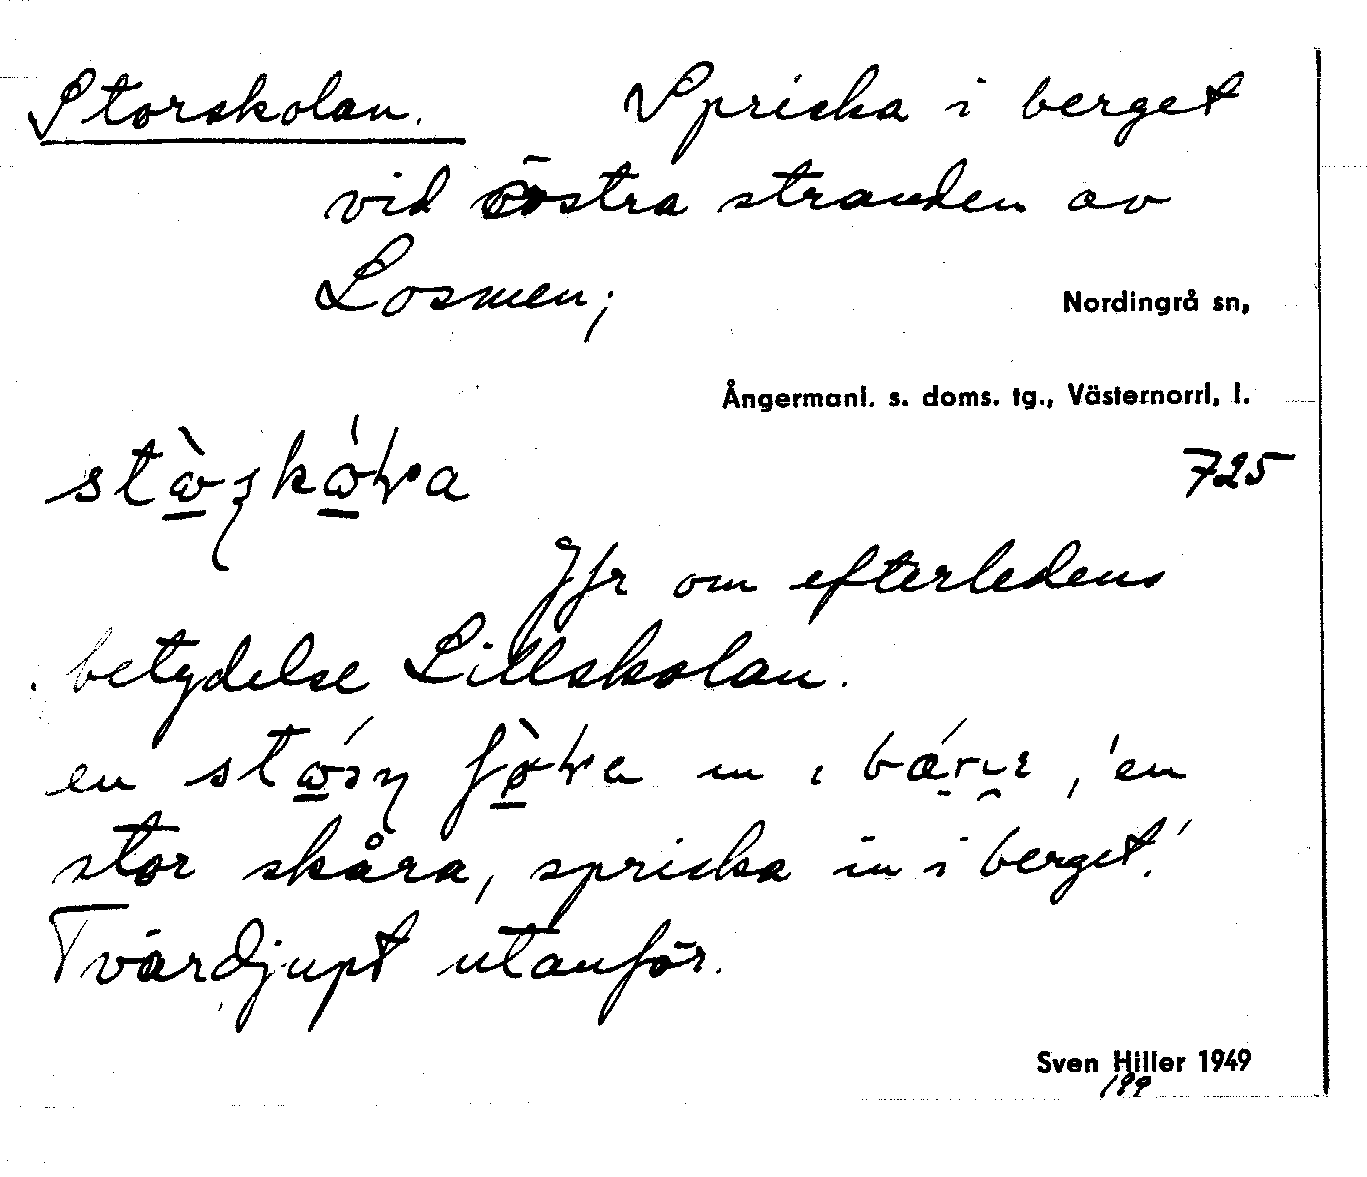 Storskolan. Spricka i berget
vid östra stranden av
Losmen;
Nordingrå sn,
Ångermanl. s. doms. tg., Västernorrl. l.
725
Jfr om efterledens
betydelse Lillskolan.
en
stor skåra, spricka in i berget.'
Tvärdjupt utanför.
Sven Hiller 1949
199